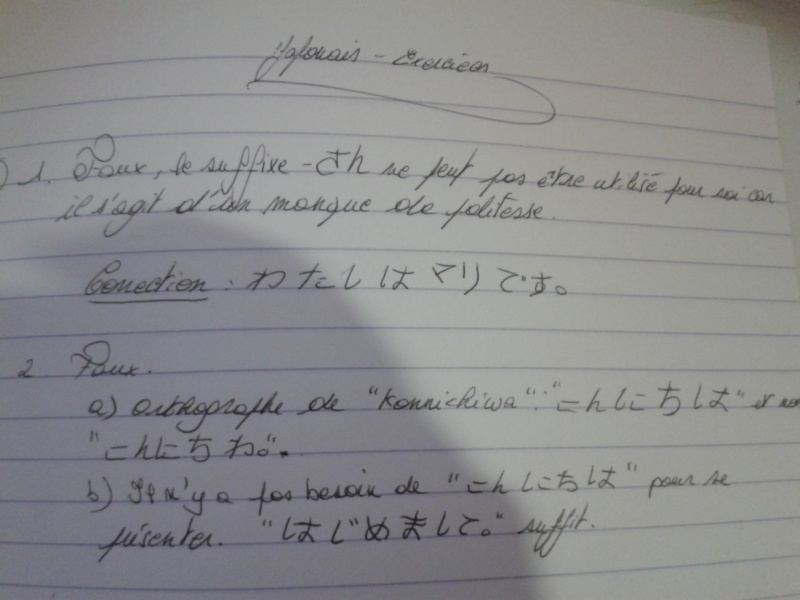 Japonais - Exercices
) 1. Faux, le suffixe -さん ne peut pas être utilisé pour soi car
il s'agit d'un manque de politesse.
Correction : わたしは マリ です。
2. Faux.
a) orthographe de "Konnichiwa": "こんにちは" et non
"こんにちわ".
b) Il n'y a pas besoin de "こんにちは" pour se
présenter. "はじめまして。" suffit.